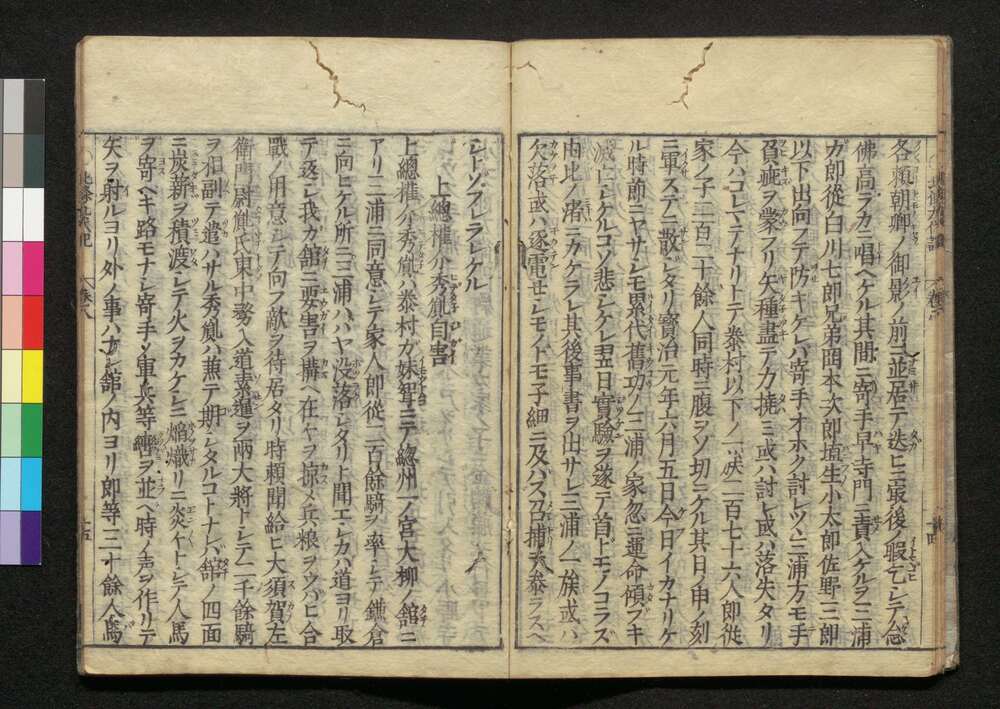 各賴朝卿ノ御影ノ前ニ並居テ迭ヒニ最後ノ暇乞シテ念
佛高ラカニ唱ヘケル其間ニ寄手早寺門ニ責入ケルヲ三浦
カ郎從白川七郎兄弟岡本次郎埴生小太郎佐野三郎
以下出向フテ防キケレバ寄手オホク討レツ三浦方モ手
負疵ヲ蒙フリ矢種盡テ力撓ミ或ハ討レ或ハ落失タリ
今ハコレマテナリトテ泰村以下ノ一族二百七十六人郎從
家ノ子二百二十餘人同時ニ腹ヲソ切ニケル其日ノ申ノ刻
ニ軍ステニ散シタリ寳治元年六月五日今日イカナリケ
ル時節ニヤサシモ累代舊功ノ三浦ノ家忽ニ運命傾フキ
滅亡シケルコソ悲シケレ翌日實驗ヲ遂テ首トモノコラズ
由比ノ渚ニカケラレ其後事書ヲ出サレ三浦ノ一族或ハ
欠落或ハ逐電せシモノトモ子細ニ及バス召捕テ參ラスヘ
シトソフレラレケル
上總權介秀胤自害
上總權介秀胤ハ泰村ガ妹聟ニテ總州一ノ宮大柳ノ舘ニ
アリ三浦ニ同意シテ家人郎從二百餘騎ヲ率シテ鎌倉
ニ向ヒケル所ニ三浦ハハヤ没落シタリト聞エシカハ道ヨリ取
テ返シ我カ舘ニ要害ヲ構ヘ在々ヲ掠メ兵粮ヲウバヒ合
戰ノ用意シテ向フ敵ヲ待居タリ時賴聞給ヒ大須賀左
衛門尉胤氏東中務入道素暹ヲ兩大將トシテ一千餘騎
ヲ相副テ遣ハサル秀胤ハ兼テ期シタルコトナレハ舘ノ四面
ニ炭薪ヲ積渡シテ火ヲカケシニ熖熾リニ炎々トシテ人馬
ヲ寄ヘキ路モナシ寄手ノ軍兵等轡ヲ並ヘ時ノ声ヲ作リテ
矢ヲ射ルヨリ外ノ事ハナシ舘ノ内ヨリ郎等三十餘人馬